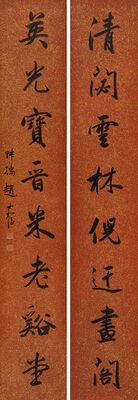 清閟雲林倪迂畫閣
英光寶晉米老谿堂
叔孺趙時棡